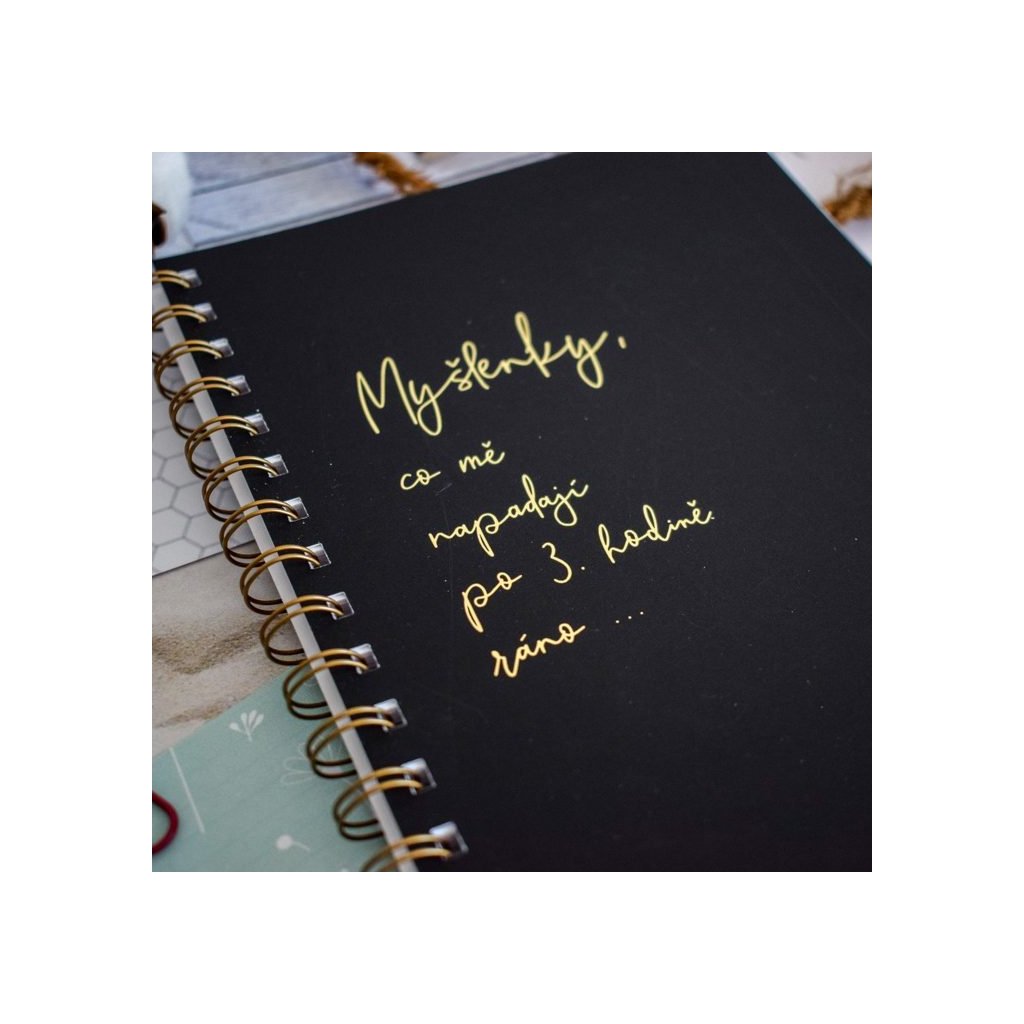 Myšlenky,
co mě
napadají
po 3. hodině
ráno ...